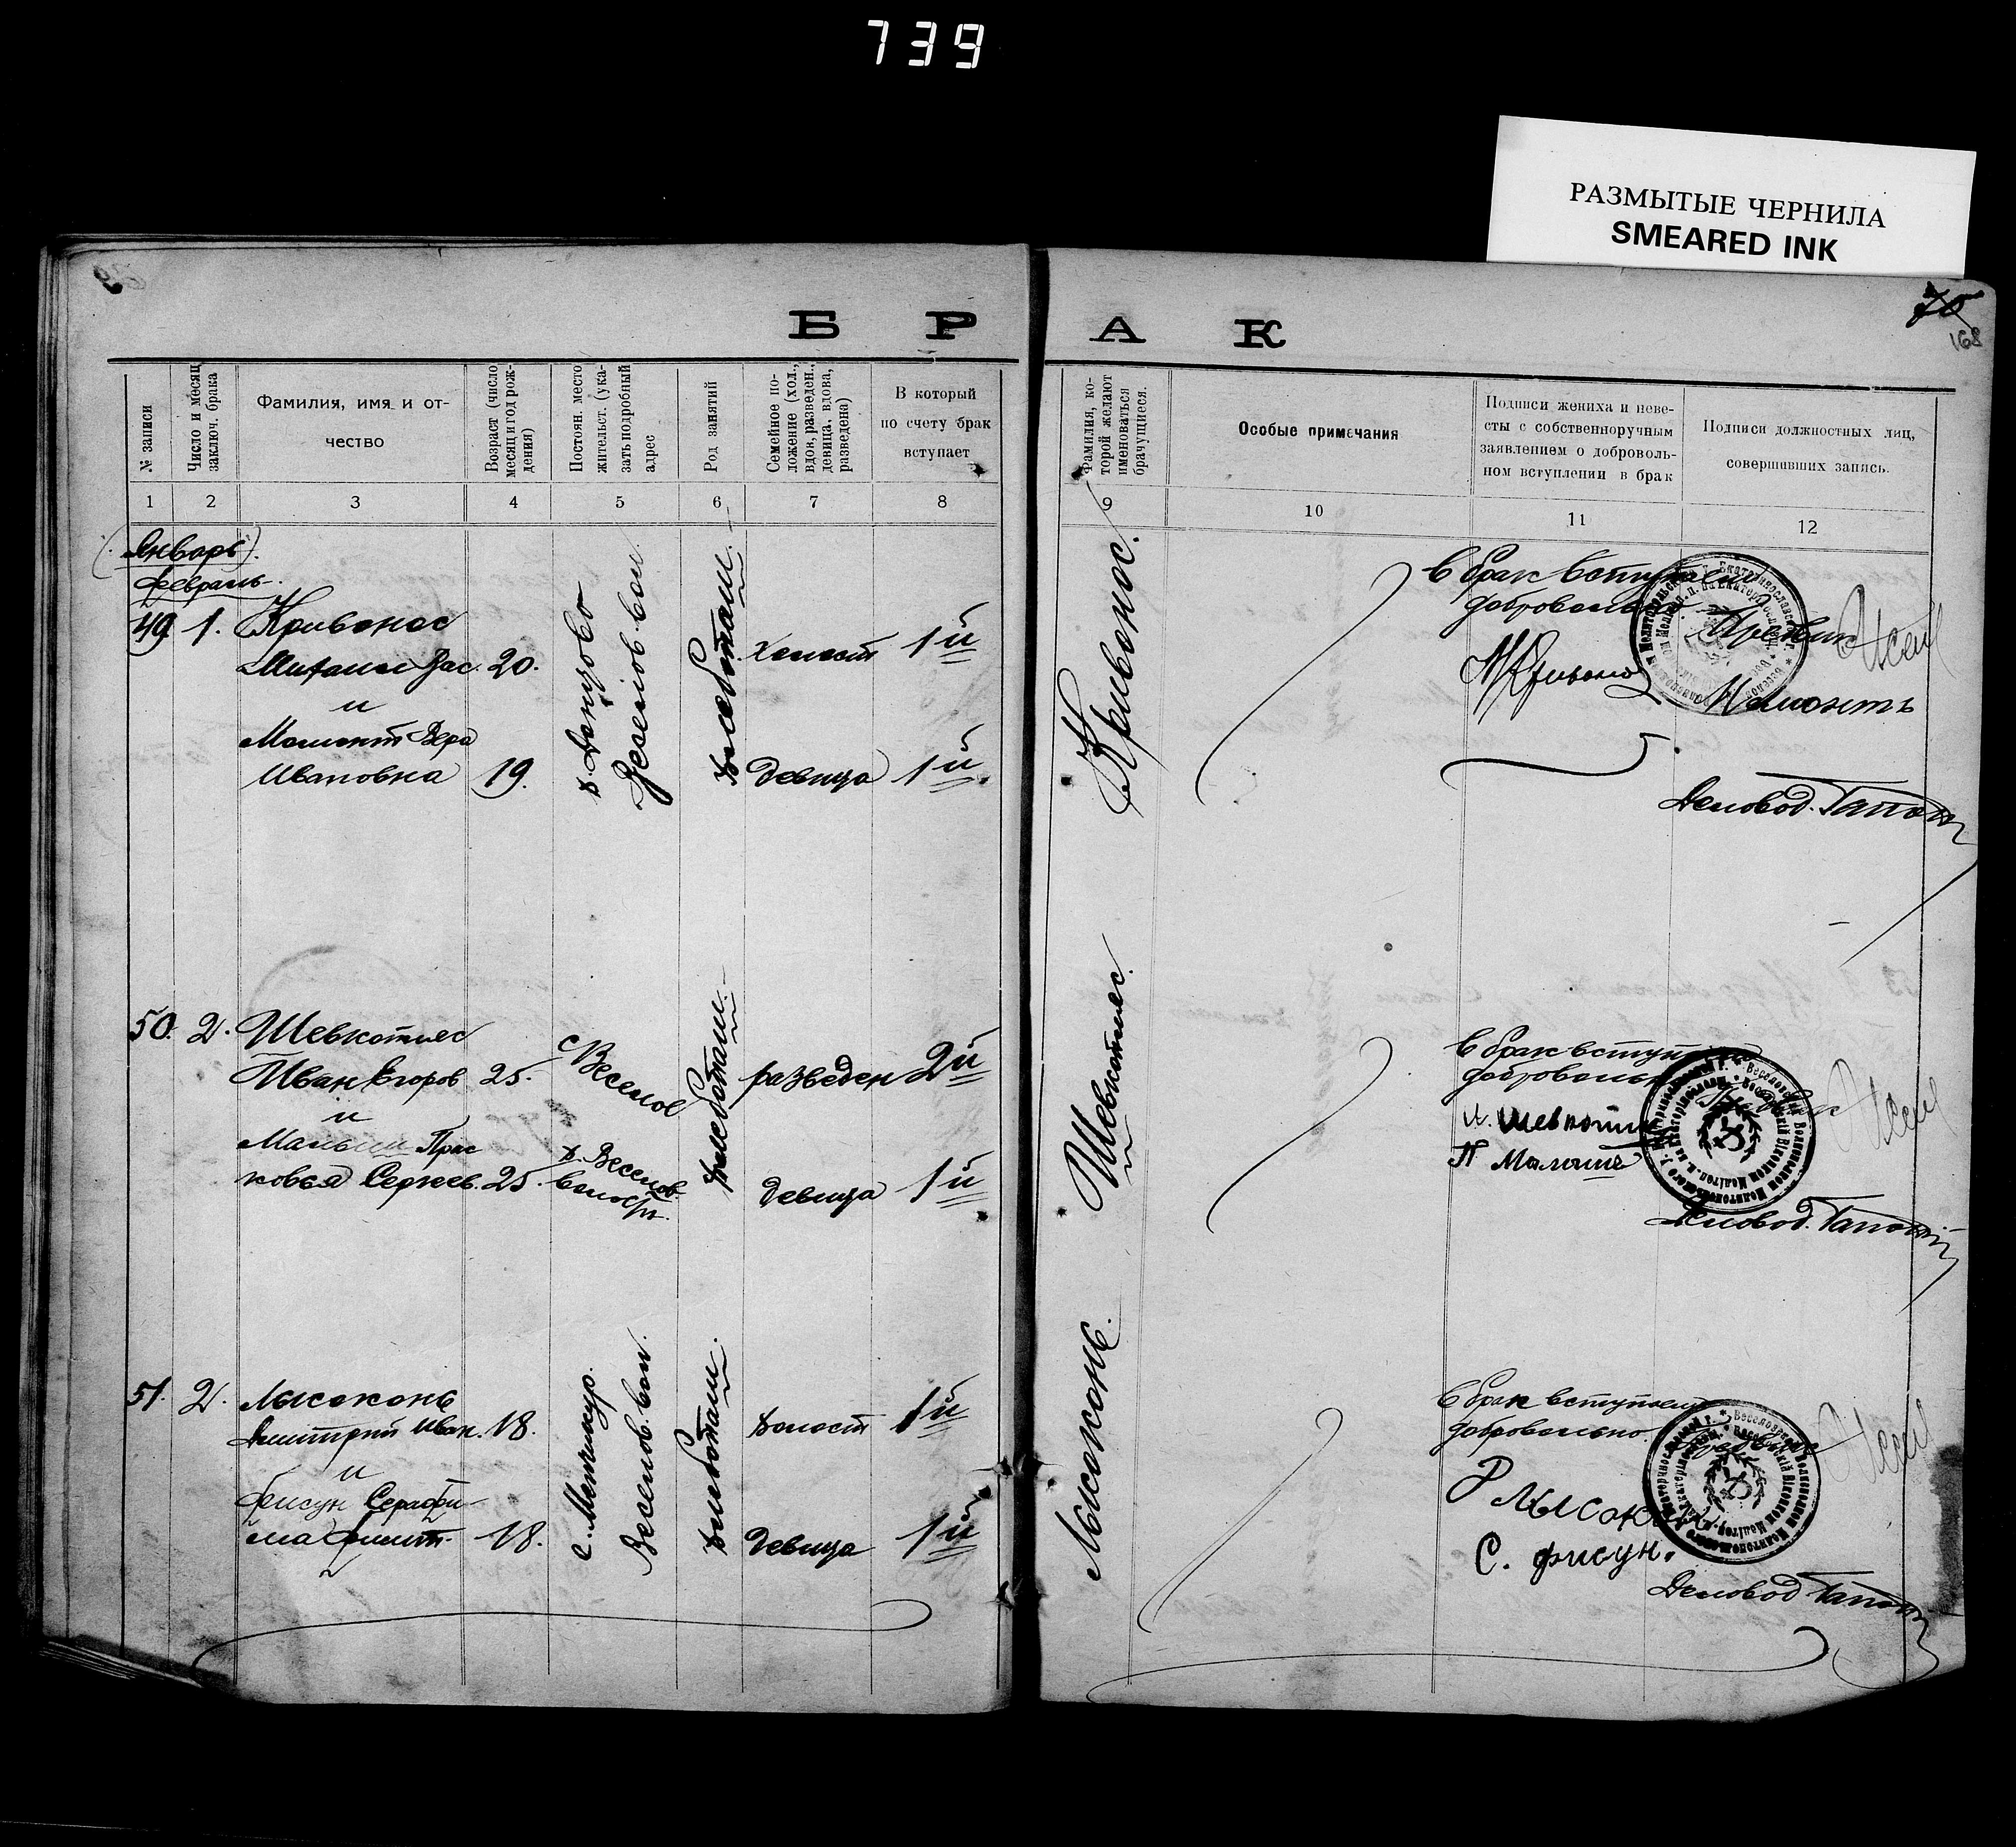 739
РАЗМЫТЫЕ ЧЕРНИЛА
SMEARED INK
70
168
Б Р А К
№ записи
Число и месяц
заключ. брака
Фамилия, имя и от-
чество
Возраст (число
месяц и год рож-
дения)
Постоян. место
жительст. (ука-
зать подробный
адрес
Род занятий
Семейное по-
ложение (хол.,
вдов, разведен.,
девица, вдова,
разведена)
В который
по счету брак
вступает
Фамилия, ко-
торой желают
именоваться
брачущиеся.
Особые примечания
Подписи жениха и неве-
сты с собственноручным
заявлением о доброволь-
ном вступлении в брак
Подписи должностных лиц,
совершивших запись.
1 2 3 4 5 6 7 8 9 10 11 12
(Январь).
Февраль.
49 1. Кривонос
Михаил Вас. 20.
и
Вера
Ивановна 19.
Веселов. вол.
Хлебопаш.
холост 1й
девица 1й
Кривонос.
В брак вступаем
добровольно
Деловод.
50. 2. Шевкопляс
Иван Егоров 25.
и
Прас
ковья Сергеев. 25.
с Веселое
Веселов.
Хлебопаш.
разведен 2й
девица 1й
Шевкопляс.
В брак вступаем
добровольно
И. Шевкопляс
П
Деловод.
51. 2. Лысоконь
Дмитрий Иван. 18.
и
Фисун Серафи-
ма Дмит. 18.
с. Менчикур.
Веселов. вол.
Хлебопаш.
холост 1й
девица 1й
Лысоконь.
В брак вступаем
добровольно.
С. Фисун.
Деловод.